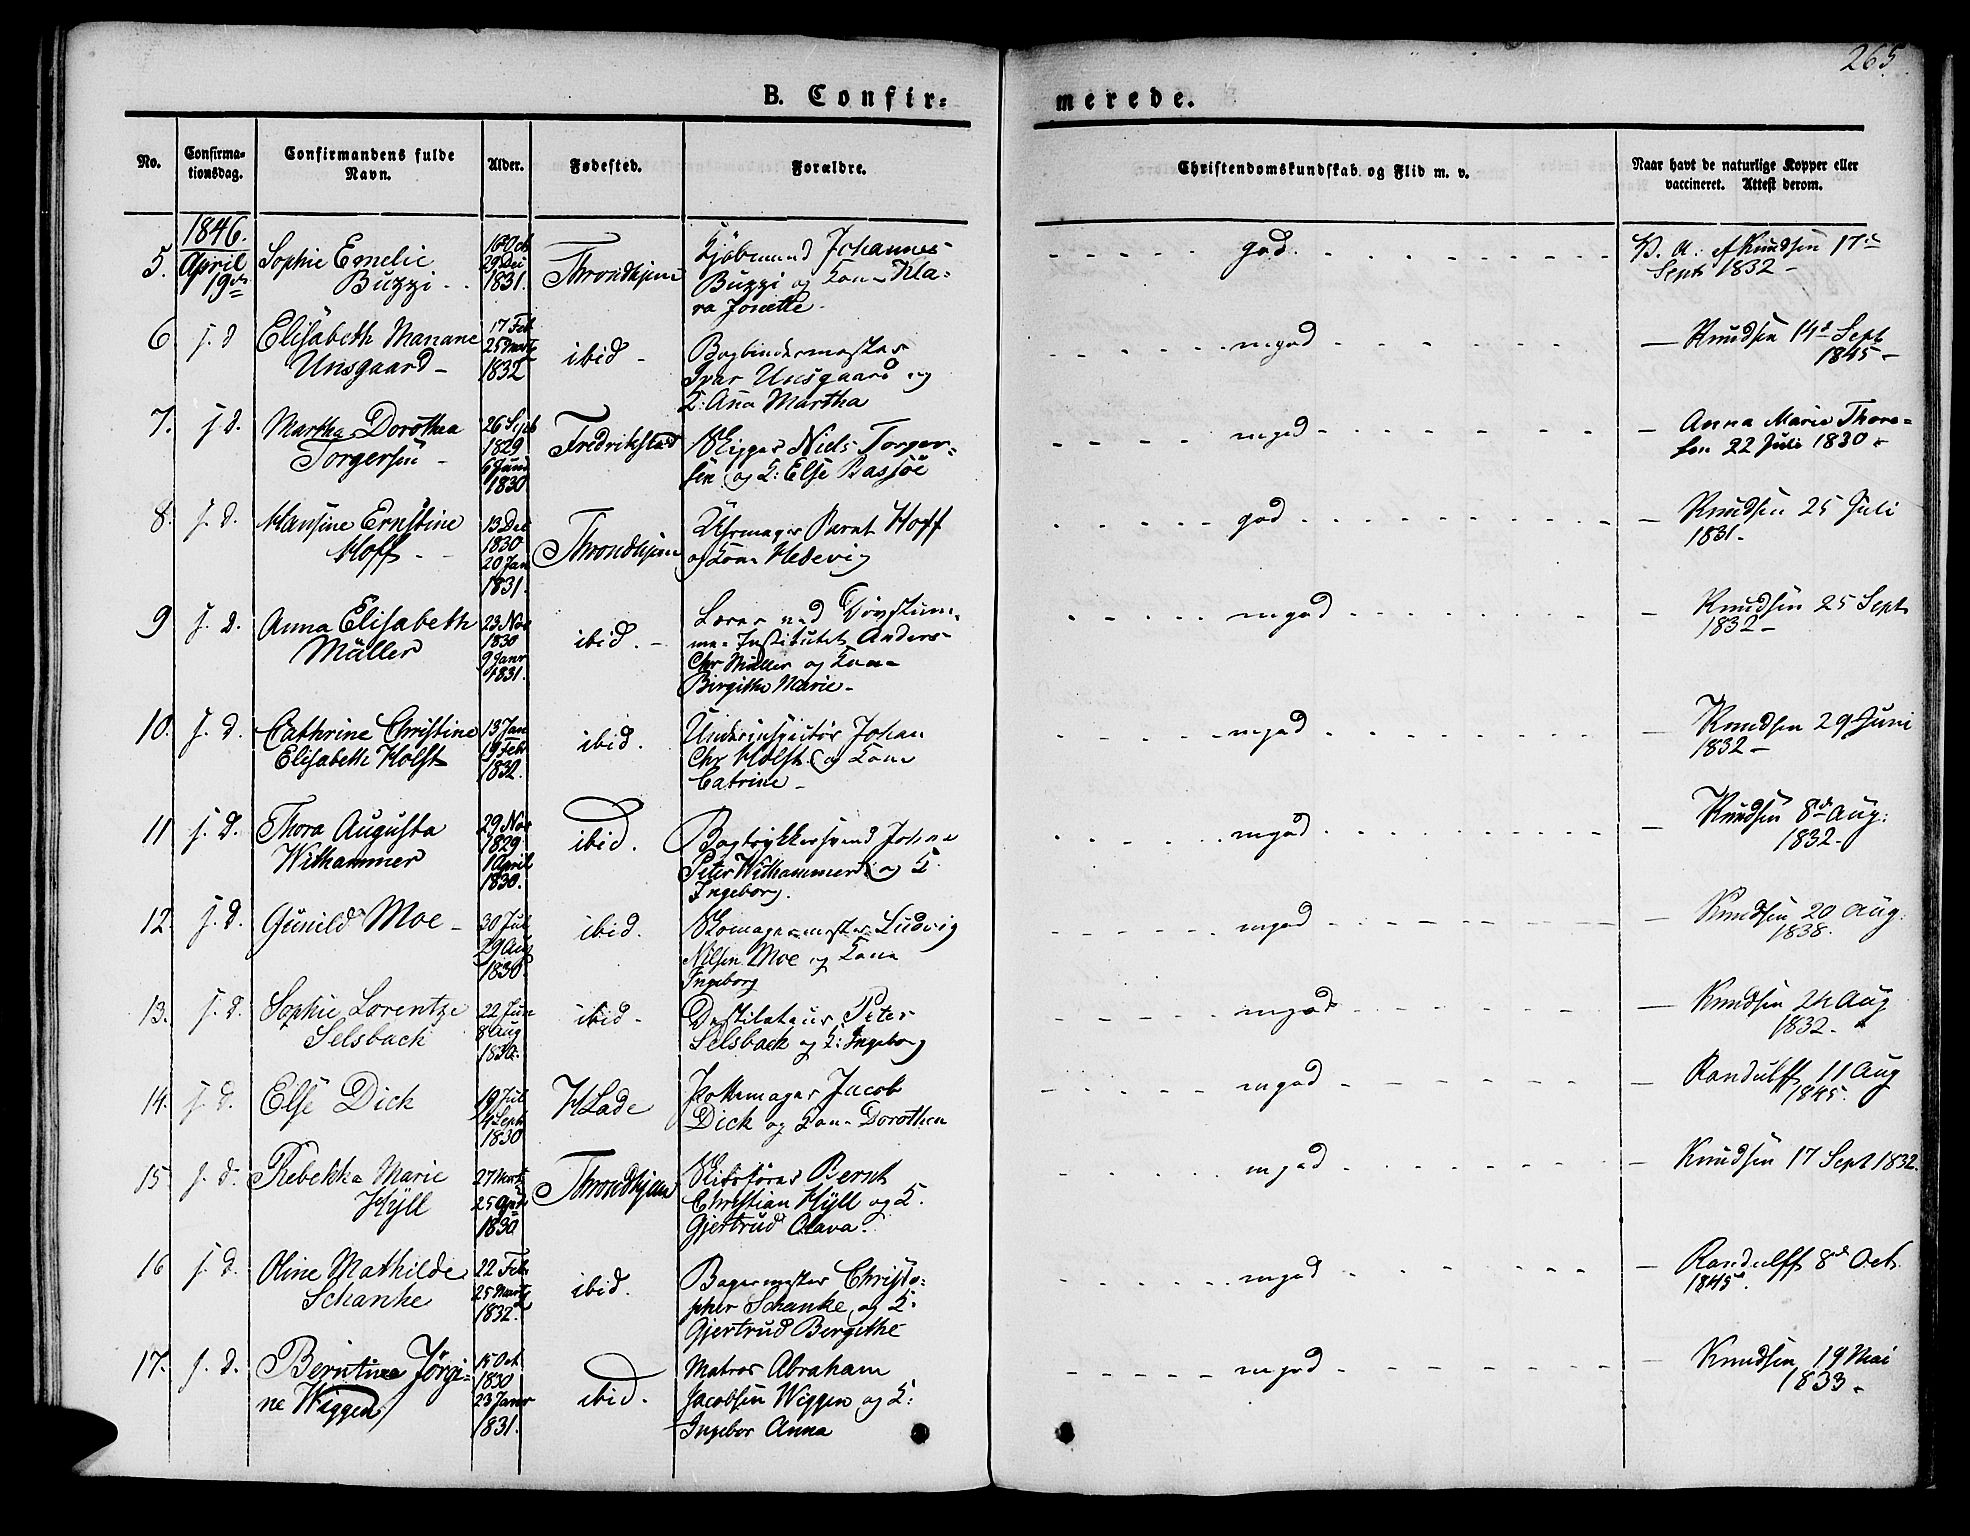 265
B. Confir=
merede.
No.
Confirma-
tionsdag.
Confirmandens fulde
Navn.
Alder.
Fødested.
Forældre.
Christendomskundskab og Flid m. v.
Naar havt de naturlige Kopper eller
vaccineret. Attest derom.
1846.
5. April
19de
Sophie Emelie
Buzzi -
16 Oct
29 Dec
1831.
Throndhjem
Kjøbmand Johannes
Buzzi og Kone Kla-
ra Jonette.
god.
V. A. af Knudsen 17de
Sept 1832 -
6 s. d
Elisabeth Mariane
Unsgaard -
17 Feb
25 Marts
1832
ibid -
Bogbindermester
Ivar Unsgaard og
K. Ana Martha
mgod
- Knudsen 14de Sept
1845 -
7. s. d.
Martha Dorothea
Torgersen -
26 Sept
1829
6 Juni
1830
Fredrikstad
Skipper Niels Torger=
sen og K: Else Bassøe
mgod
- Anna Marie Thore=
sen 22 Juli 1830 -
8. s. d.
Hansine Ernstine
Hoff -
13 Dec
1830
20 Jan
1831.
Throndhjem
Uhrmager Barnt Hoff
og Kone Hedevig
god
- Knudsen 25 Juli
1831 -
9 s. d.
Anna Elisabeth
Müller
23 Nov
1830
9 Janr
1831.
ibid. -
Lærer ved Døvstum-
me-Institutet Anders
Chr Müller og Kone
Birgithe Marie -
mgod
- Knudsen 25 Sept
1832 -
10. s. d.
Cathrine Christine
Elisabeth Holst
13 Jan
19 Feb
1832.
ibid.
Underinspecteur Johan
Chr Holst og Kone
Catrine -
mgod
- Knudsen 29 Juni
1832 -
11 s. d.
Thora Augusta
Withammer
29 Nov
1829
1 April
1830.
ibid.
Bogtrykkersvend Johan
Peter Withammer og K
Ingeborg.
mgod
- Knudsen 8de Aug:
1832. -
12. s. d.
Gunild Moe -
30 Jul
29 Aug
1830
ibid.
Skomagermester Ludvig
Nilsen Moe og Kone
Ingeborg
mgod
- Knudsen 20 Aug:
1838.
13. s. d.
Sophie Lorentze
Selsback
22 Jun
8 Aug
1830.
ibid -
Destilateur Peter
Selsback og K: Ingeborg
mgod
- Knudsen 24 Aug
1832. -
14. s. d.
Else Dick
19 Jul
4 Sept
1830
H Lade
Pottemager Jacob
Dick og Kone Dorothea
mgod
- Randulff 11 Aug
1845.
15 s. d.
Rebekka Marie
Hÿll
27 Marts
25 April
1830
Throndhjem
Slitsfører Bernt
Christian Hÿll og K.
Gjertrud Olava.
mgod
- Knudsen 17 Sept 1832.
16 s. d.
Oline Mathilde
Schanke
22 Feb
25 Marts
1832
ibid.
Bagermester Christo=
pher Schanke og K:
Gjertrud Bergithe
mgod
- Randulff 8de Oct
1845.
17. s. d.
Berntine Jørgi=
ne Wiggen
15 Oct
1830
23 Janr
1831.
ibid.
Matros Abraham
Jacobsen Wiggen og K:
Ingebor Anna
mgod
- Knudsen 19 Mai
1833 -